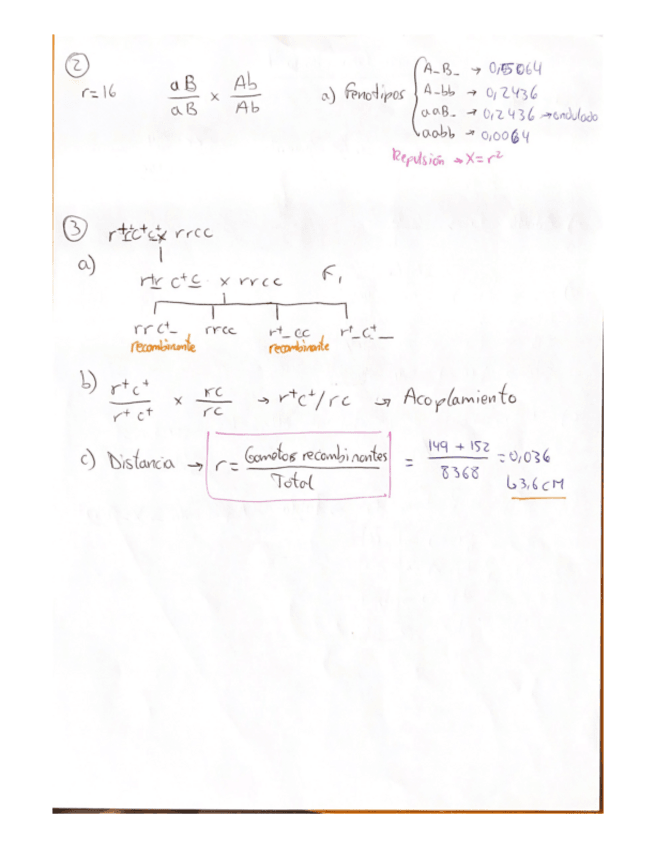 ②
r=16 aB/aB x Ab/Ab a) Fenotipos
A_B_ → 0,5064
A_bb → 0,2436
aaB_ → 0,2436 → ondulado
aabb → 0,0064
Repulsión → X=r²
③ r⁺r⁺c⁺c⁺ x rrcc
a)
r⁺r c⁺c x rrcc F₁
rrc⁺_ rrcc r⁺_cc r⁺_c⁺_
recombinante recombinante
b) r⁺c⁺/r⁺c⁺ x rc/rc → r⁺c⁺/rc ↪ Acoplamiento
c) Distancia → r = Gametos recombinantes/Total = 149 + 152/8368 = 0,036
↳ 3,6 cM